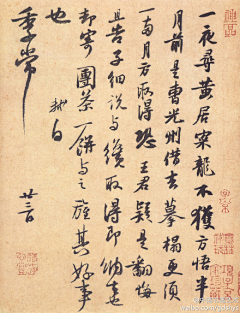 一夜尋黃居寀龍不獲方悟半
月前是曹光州借去摹搨更須
一兩月方取得恐王君疑是翻悔
且告子細說與纔取得即納去也
却寄團茶一餅與之旌其好事
也軾白
季常
廿三日